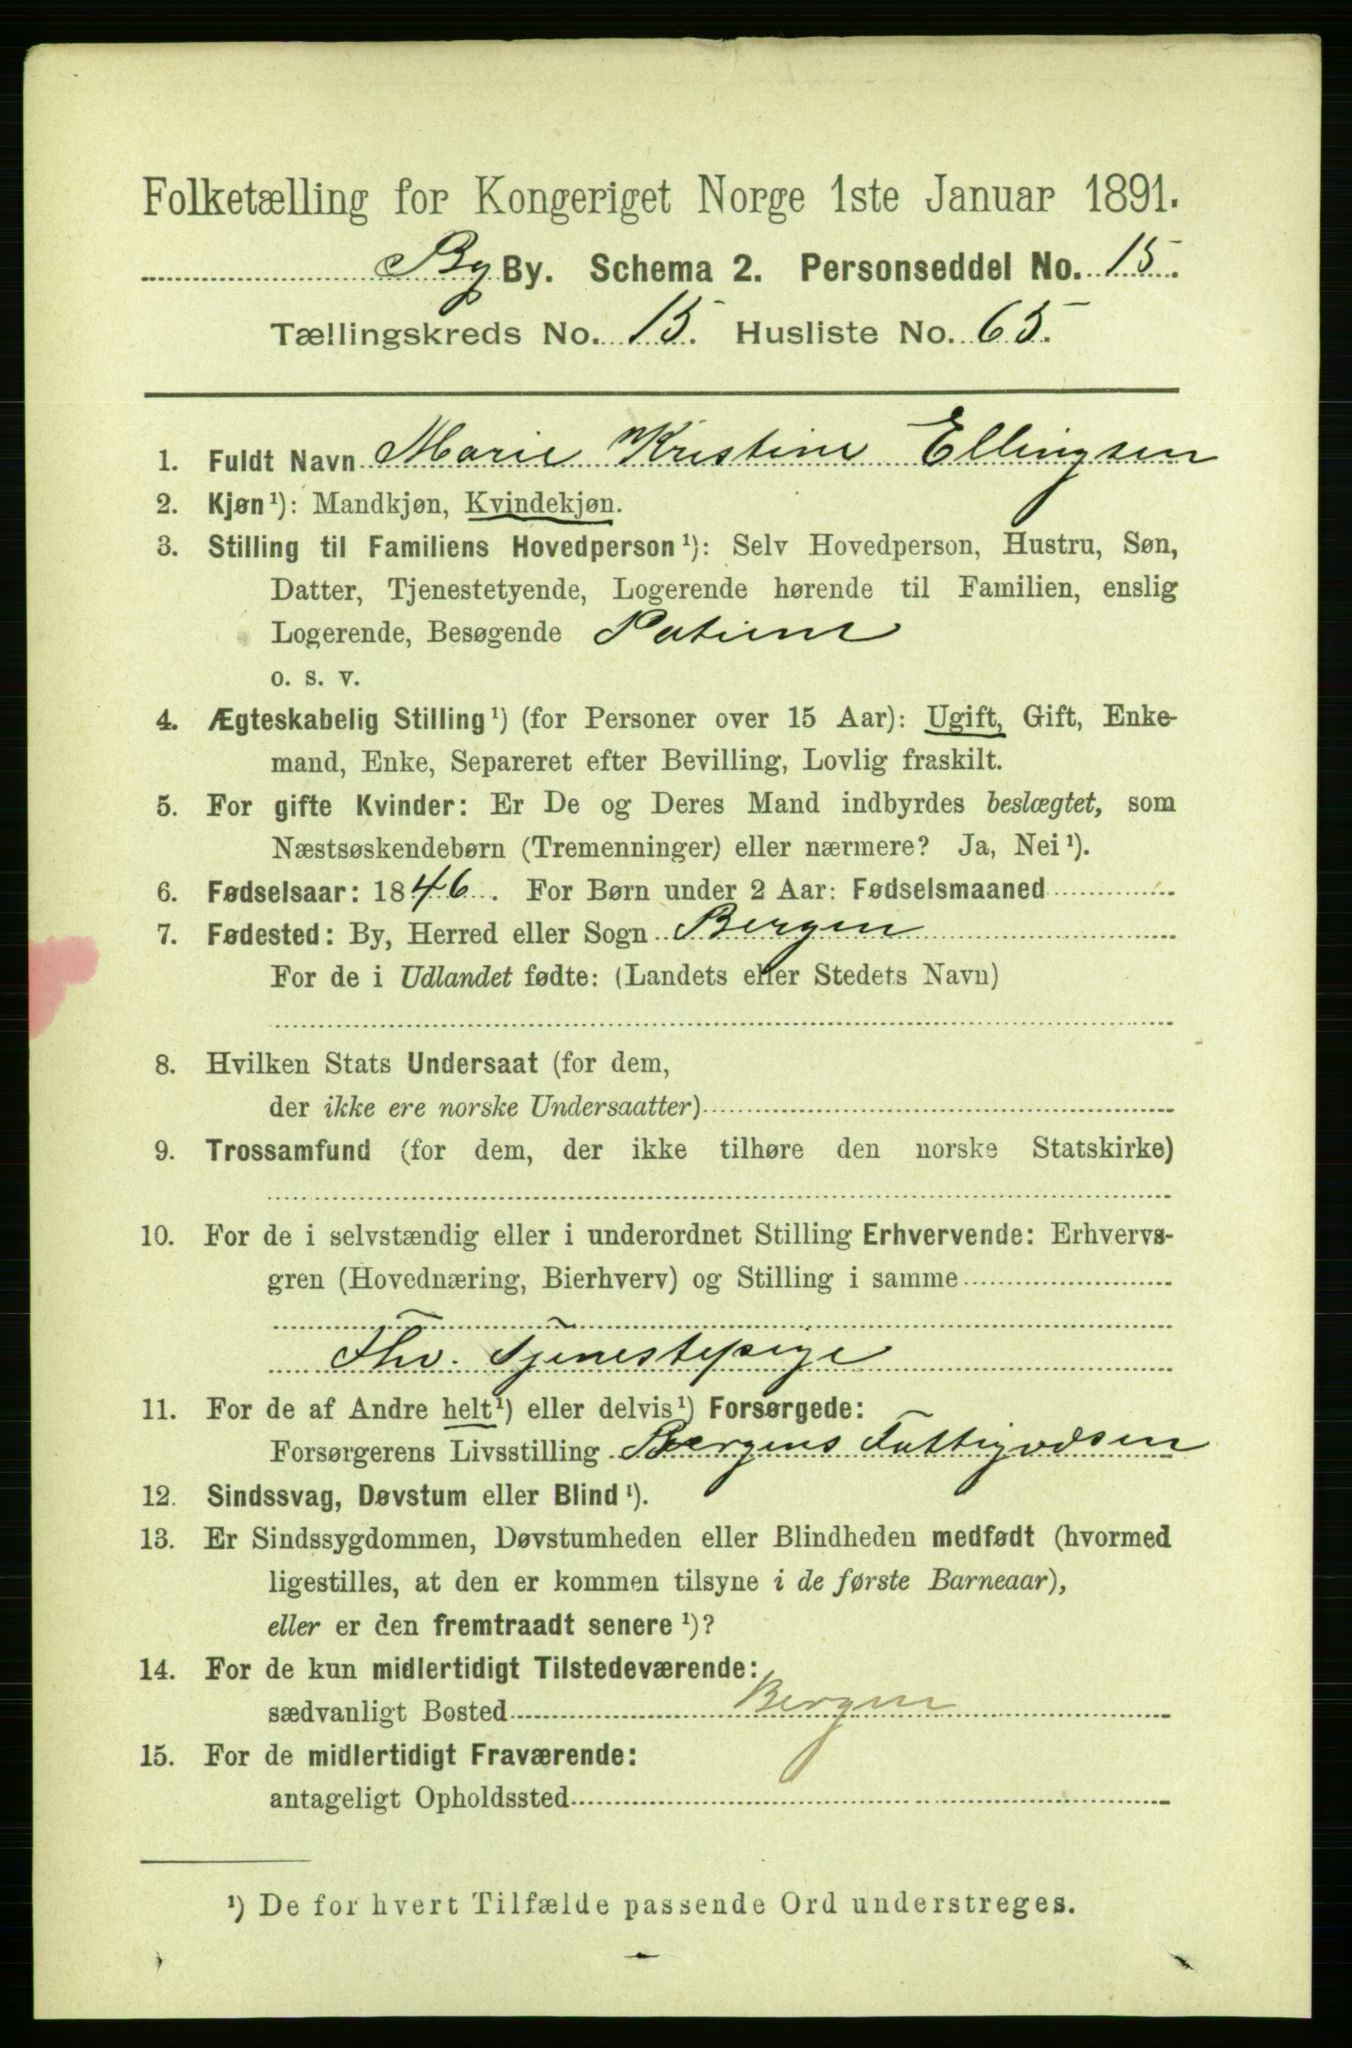 Folketælling for Kongeriget Norge 1ste Januar 1891.
By By. Schema 2. Personseddel No. 15.
Tællingskreds No. 15. Husliste No. 65.
1. Fuldt Navn Marie Kristine Ellingsen
2. Kjøn¹): Mandkjøn, Kvindekjøn.
3. Stilling til Familiens Hovedperson¹): Selv Hovedperson, Hustru, Søn,
Datter, Tjenestetyende, Logerende hørende til Familien, enslig
Logerende, Besøgende Patient
o. s. v.
4. Ægteskabelig Stilling¹) (for Personer over 15 Aar): Ugift, Gift, Enke-
mand, Enke, Separeret efter Bevilling, Lovlig fraskilt.
5. For gifte Kvinder: Er De og Deres Mand indbyrdes beslægtet, som
Næstsøskendebørn (Tremenninger) eller nærmere? Ja, Nei¹).
6. Fødselsaar: 1846. For Børn under 2 Aar: Fødselsmaaned
7. Fødested: By, Herred eller Sogn Bergen
For de i Udlandet fødte: (Landets eller Stedets Navn)
8. Hvilken Stats Undersaat (for dem,
der ikke ere norske Undersaatter)
9. Trossamfund (for dem, der ikke tilhøre den norske Statskirke)
10. For de i selvstændig eller i underordnet Stilling Erhvervende: Erhvervs-
gren (Hovednæring, Bierhverv) og Stilling i samme
Fhv. Tjenestepige
11. For de af Andre helt¹) eller delvis¹) Forsørgede:
Forsørgerens Livsstilling Bergens Fattigvæsen
12. Sindssvag, Døvstum eller Blind¹).
13. Er Sindssygdommen, Døvstumheden eller Blindheden medfødt (hvormed
ligestilles, at den er kommen tilsyne i de første Barneaar),
eller er den fremtraadt senere¹)?
14. For de kun midlertidigt Tilstedeværende:
sædvanligt Bosted Bergen
15. For de midlertidigt Fraværende:
antageligt Opholdssted
¹) De for hvert Tilfælde passende Ord understreges.